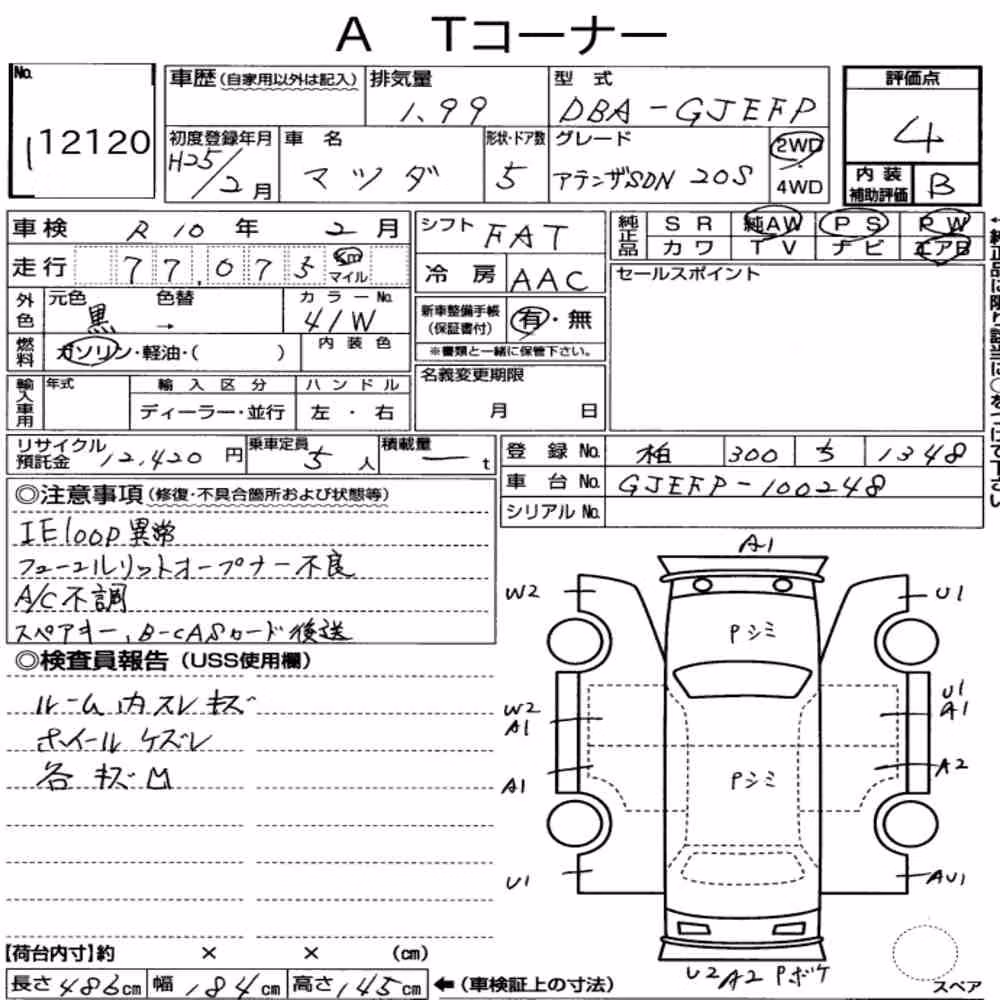 A Tコーナー
No. 12120
車歴(自家用以外は記入) 排気量 1.99 型式 DBA-GJEFP 評価点 4
初度登録年月 H25/2月 車名 マツダ 形状・ドア数 5 グレード アテンザSDN 20S 2WD・4WD
内装補助評価 B
車検 R10年 2月
走行 77,073 km マイル
外色 元色 黒 → 色替 カラーNo. 41W
燃料 ガソリン・軽油・( ) 内装色
輸入車用 年式 輸入区分 ディーラー・並行 ハンドル 左・右
シフト FAT
冷房 AAC
新車整備手帳(保証書付) 有・無
※書類と一緒に保管下さい。
名義変更期限 月 日
純正品 SR 純AW PS PW
カワ TV ナビ エアB
セールスポイント
←純正品に限り該当に○をつけて下さい
リサイクル預託金 12,420円 乗車定員 5人 積載量 ー t
登録No. 柏 300 ち 1348
車台No. GJEFP-100248
シリアルNo.
◎注意事項(修復・不具合箇所および状態等)
IEloop異常
フューエルリットオープナー不良
A/C不調
スペアキー、B-CASカード後送
◎検査員報告(USS使用欄)
ルーム内スレキズ
ホイールケズレ
各キズ凹
A1
W2 U1
Pシミ
W2 A1 U1 A1
A1 Pシミ A2
U1 AU1
U2 A2 Pボケ
スペア
【荷台内寸】約 × × (cm)
長さ486cm 幅184cm 高さ145cm ←(車検証上の寸法)